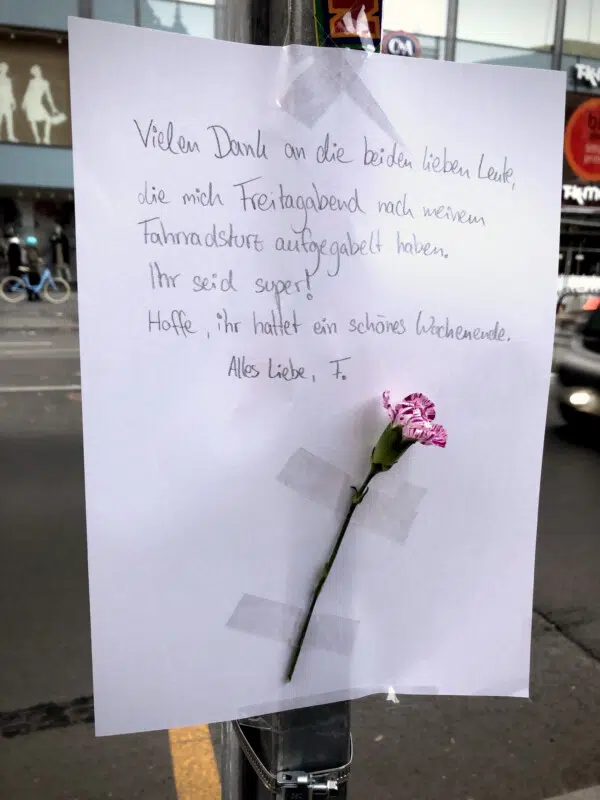 Vielen Dank an die beiden lieben Leute,
die mich Freitagabend nach meinem
Fahrradsturz aufgegabelt haben.
Ihr seid super!
Hoffe, ihr hattet ein schönes Wochenende.
Alles Liebe, F.